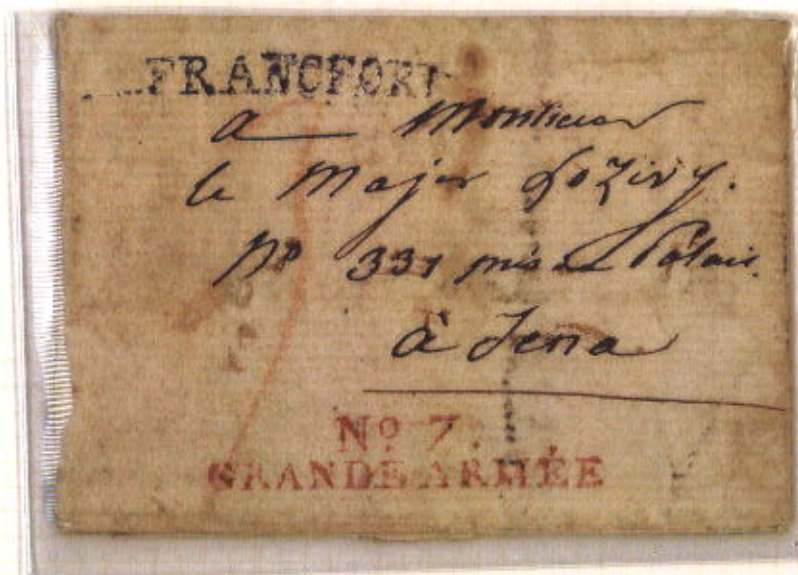 FRANCFORT
a Monsieur
le Major Lozivy.
No 331 près le Palais.
à Jena
No 7.
GRANDE ARMÉE